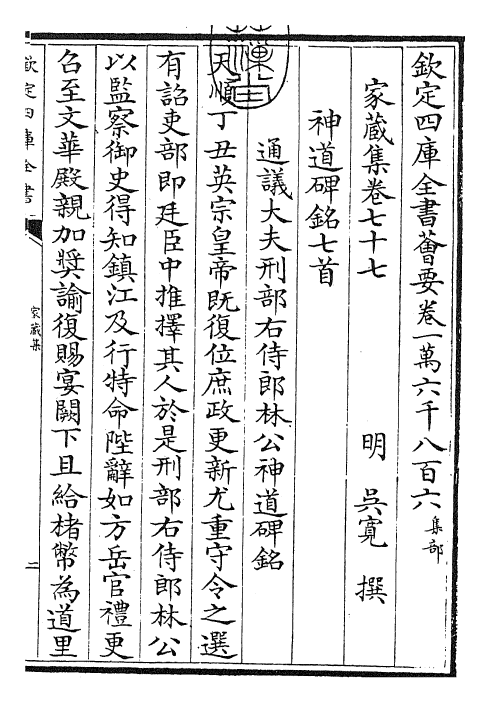 欽定四庫全書薈要卷一萬六千八百六 集部
家藏集卷七十七
明 吳寬 撰
神道碑銘七首
通議大夫刑部右侍郎林公神道碑銘
天順丁丑英宗皇帝既復位庶政更新尤重守令之選
有詔吏部即廷臣中推擇其人於是刑部右侍郎林公
以監察御史得知鎮江及行特命陛辭如方岳官禮更
召至文華殿親加奬諭復賜宴闕下且給楮幣為道里
欽定四庫全書
家藏集